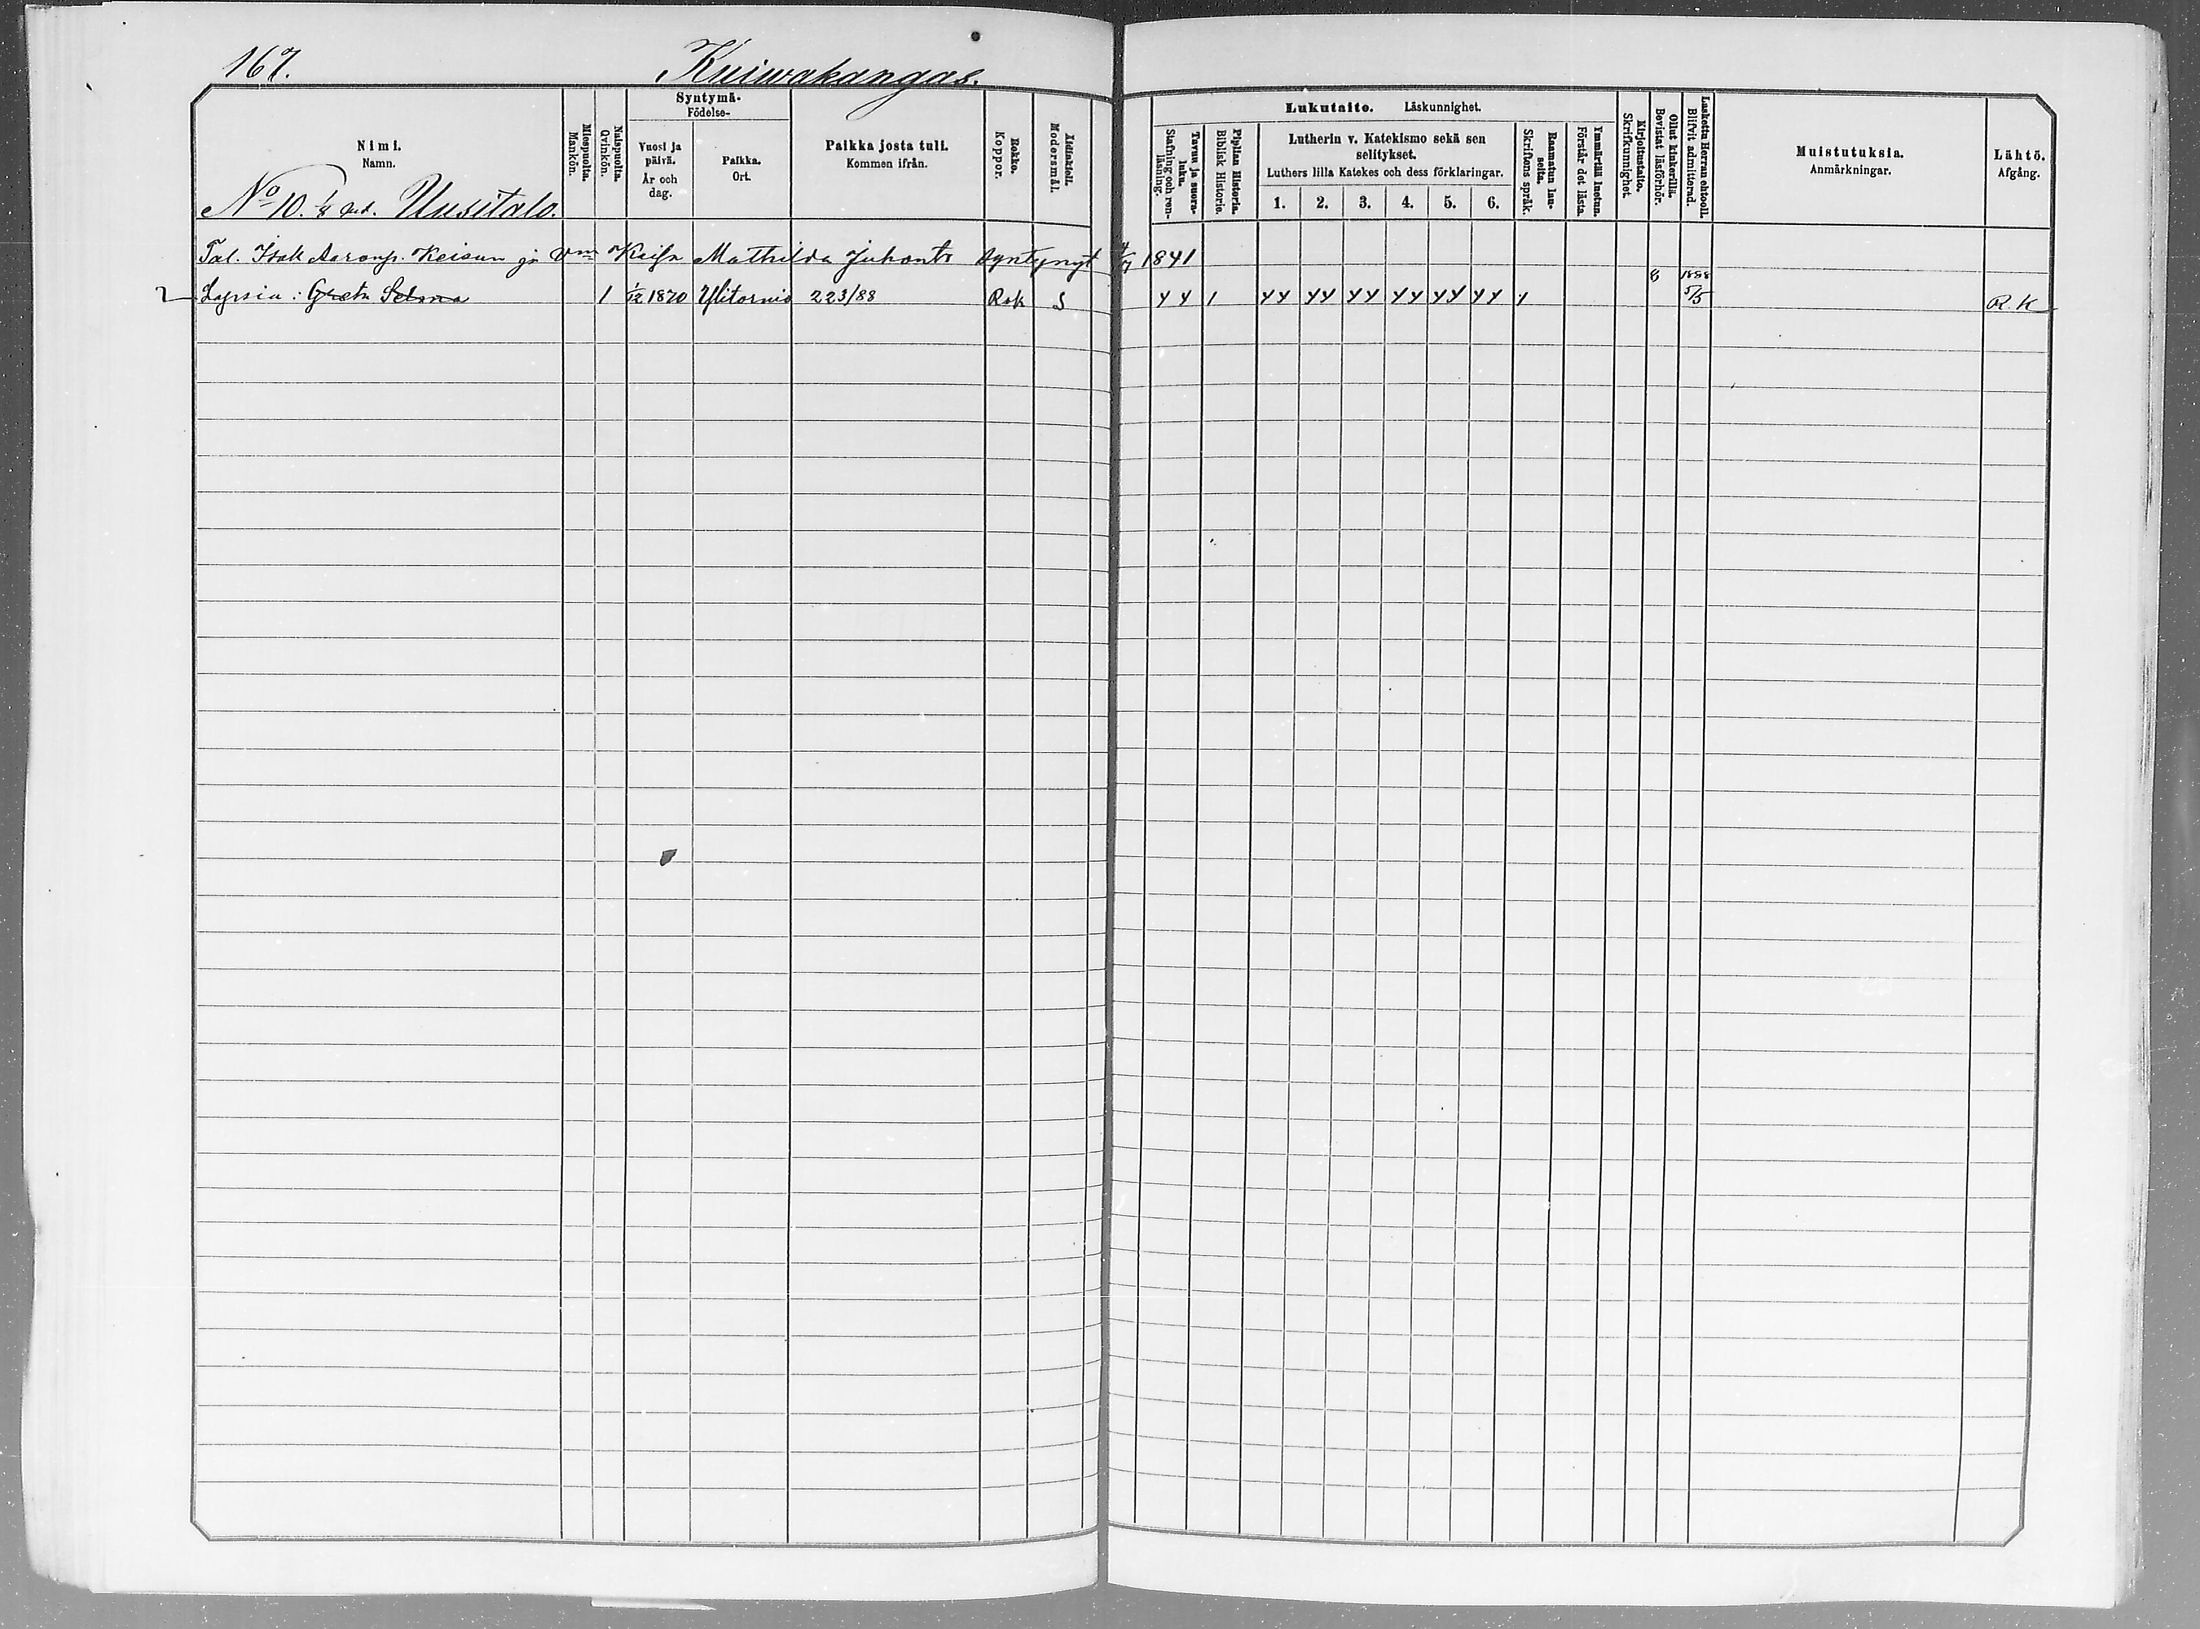 167.
Kuiwakangas.
Nimi.
Namn.
Miespuolta.
Mankön.
Naispuolta.
Qvinkön.
Syntymä-
Födelse-
Vuosi ja
päivä.
År och
dag.
Paikka.
Ort.
Paikka josta tuli.
Kommen ifrån.
Rokko.
Koppor.
Äidinkieli.
Modersmål.
Lukutaito. Läskunnighet.
Tavuu ja suora-
luku.
Stafning och ren-
läsning.
Piplian Historia.
Biblisk Historie.
Lutherin v. Katekismo sekä sen
selitykset.
Luthers lilla Katekes och dess förklaringar.
1. 2. 3. 4. 5. 6.
Raamatun lau-
seita.
Skriftens språk.
Ymmärtää luetun.
Förstår det lästa.
Kirjoitustaito.
Skrifkunnighet.
Ollut kinkerillä.
Bevistat läsförhör.
Laskettu Herran ehtooll.
Blifvit admitterad.
Muistutuksia.
Anmärkningar.
Lähtö.
Afgång.
No 10. 1/8 Uusitalo.
Tal. Isak Aaronp. Keisun ja Kaisa Mathilda Juhont syntynyt 1841
2 Lapsia: Greta Selma 1 1/12 1870 Ylitornio 223/88 Rok S Y Y 1 YY YY YY YY YY YY Y 8 1888 5/5 R. K